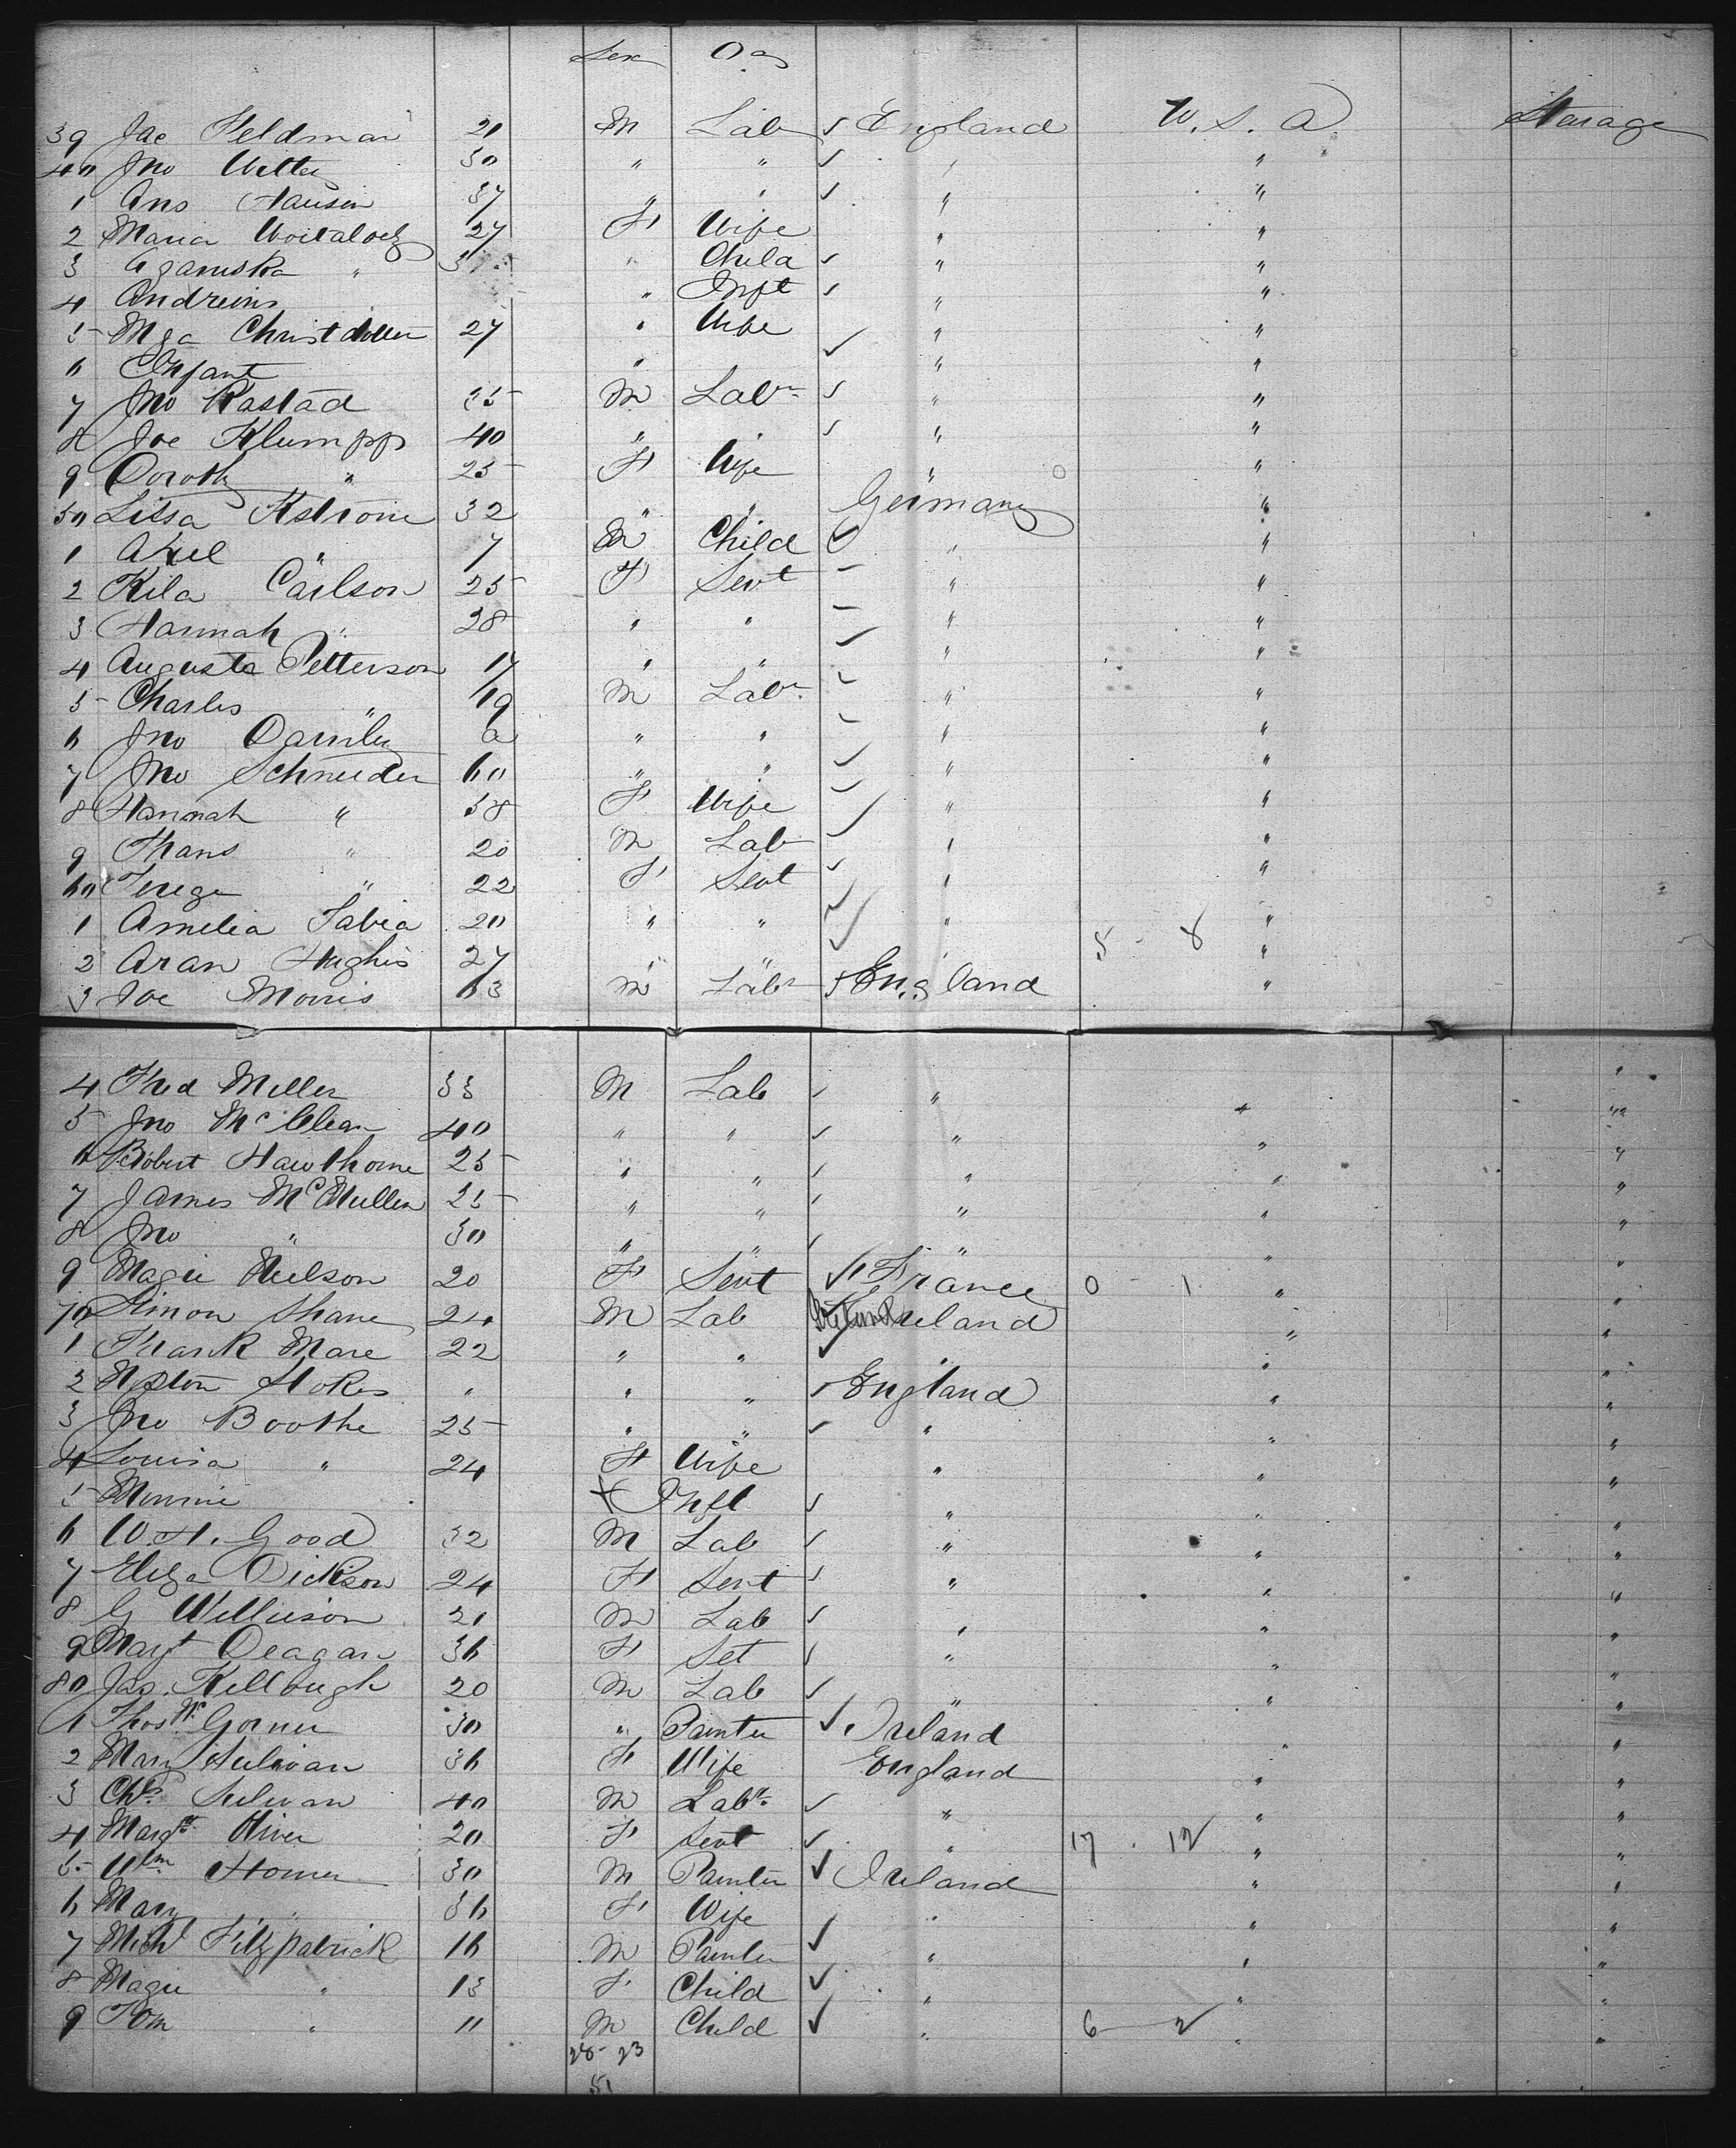 Sex Oc
39 Jac Feldman 21 M Lab England U.S.A. Starage
40 Jno Witter 30 " " " "
1 Ans Hansen 37 " " " "
2 Maria 27 F Wife " "
3 " " Child " "
4 Andreins " Inft " "
5 Mga 27 " Wife " "
6 Infant " " "
7 Jno Rastad 25 M Labr " "
8 Joe Klumpp 40 " " " "
9 Doroth " 25 F Wife " "
50 Lissa 32 " " Germany "
1 Axel " 7 M Child " "
2 Kila Carlson 25 F Sevt " "
3 Hannah " 28 " " " "
4 Augusta Petterson 17 " " " "
5 Charles " 19 M Labr " "
6 Jno " " " "
7 Jno Schneider 60 " " " "
8 Hannah " 58 F Wife " "
9 Hans " 20 M Lab " "
60 " 22 F Sevt " "
1 Amelia 20 " " " "
2 Aran Hughis 27 " " 5 - 8 "
3 Joe Morris 63 M Labr England "
4 Fred Miller 33 M Lab " " "
5 Jno McClean 40 " " " " "
6 Robert Hawthorne 25 " " " " "
7 James McMullen 25 " " " " "
8 Jno " 30 " " " " "
9 Magie Neilson 20 F Sevt France 0 - 1 " "
70 Simon Shane 24 M Lab Ireland " "
1 Frank Mare 22 " " " " "
2 Stokes " " " England " "
3 Jno Boothe 25 " " " " "
4 Louisa " 24 F Wife " " "
5 Minnie Infl " " "
6 W.H. Good 32 M Lab " " "
7 Eliza Dickson 24 F Sevt " " "
8 G Willieson 21 M Lab " " "
9 Margt Deagan 36 F Set " " "
80 Jas. Kellough 20 M Lab " " "
1 Thos Mc Gorner 30 " Painter Ireland " "
2 Mary Sulivan 36 F Wife England " "
3 Chs Sulivan 40 M Labr. " " "
4 Margt 20 F Sevt " 17 - 12 " "
5 Wm 30 M Painter Ireland " "
6 Mary " 36 F Wife " " "
7 Michl Fitzpatrick 16 M Painter " " "
8 Magie " 13 F Child " " "
9 Tom " 11 M Child " 6 - 2 " "
28 - 23
51